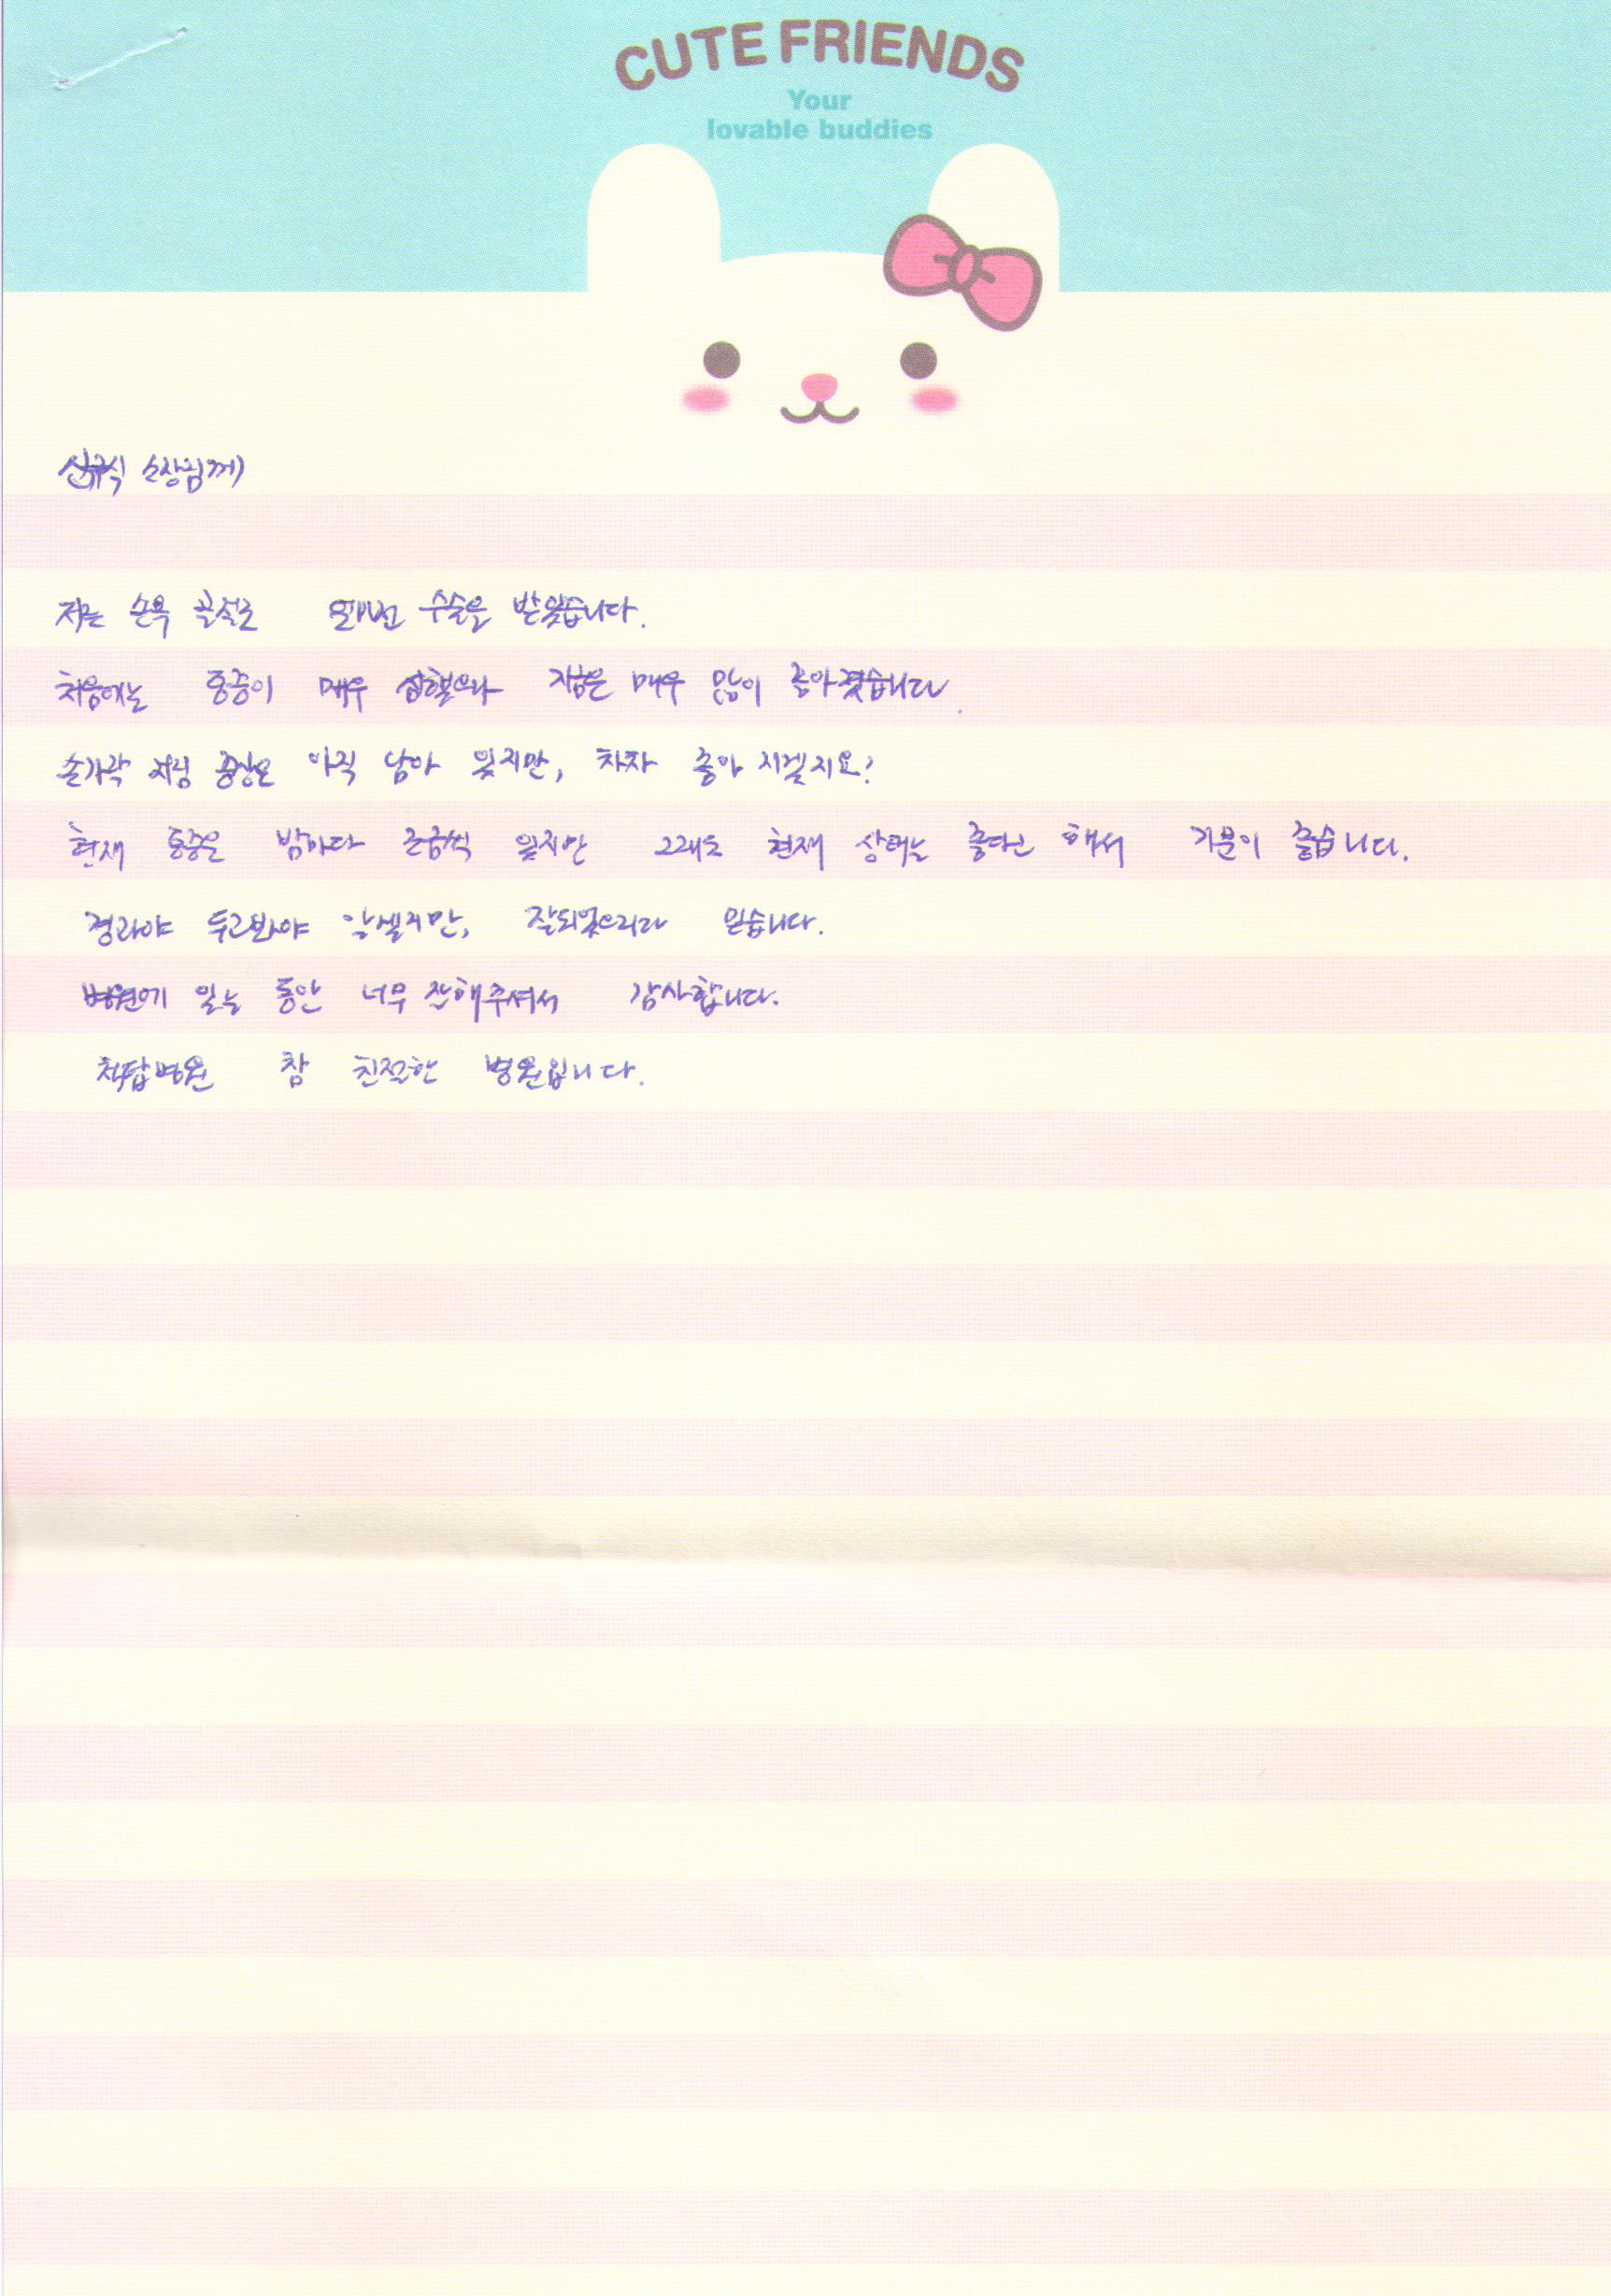 CUTE FRIENDS
Your
lovable buddies
소장님께
저는 손목 골절로 수술을 받았습니다.
처음에는 통증이 매우 심했으나 지금은 매우 많이 좋아졌습니다.
손가락 저림 증상은 아직 남아 있지만, 차차 좋아 지겠지요?
현재 통증은 밤마다 조금씩 있지만 그래도 현재 상태는 좋다고 해서 기분이 좋습니다.
경과야 두고봐야 알겠지만, 잘되었으리라 믿습니다.
병원에 있는 동안 너무 잘해주셔서 감사합니다.
척탑병원 참 친절한 병원입니다.